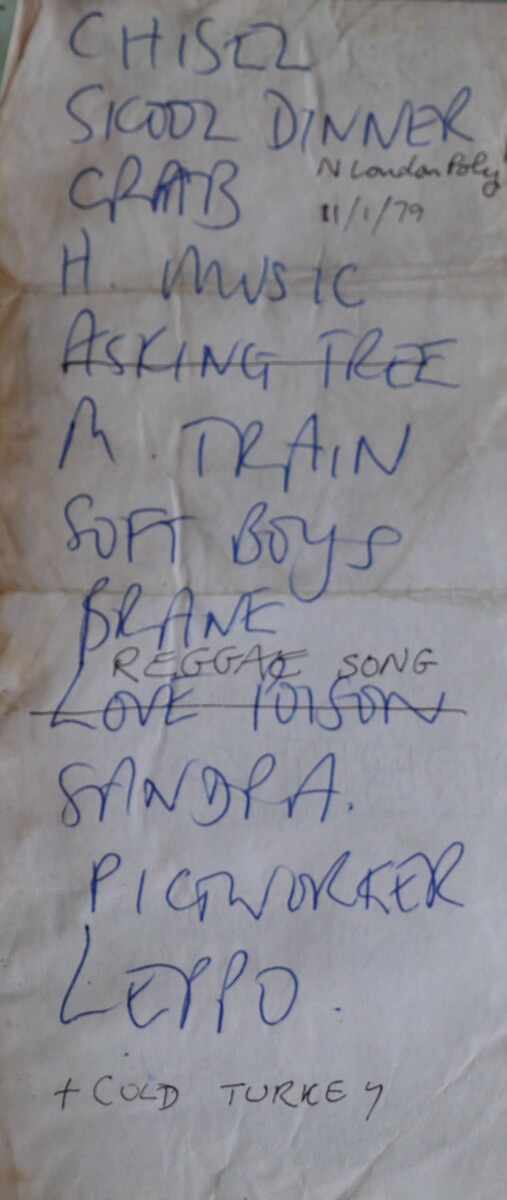 CHISEL
SKOOL DINNER
CRAB
N London Poly
11/1/79
H. MUSIC
ASKING TREE
M. TRAIN
SOFT BOYS
BRANE
REGGAE SONG
LOVE POISON
SANDRA.
PIGWORKER
LEPPO.
+ COLD TURKEY